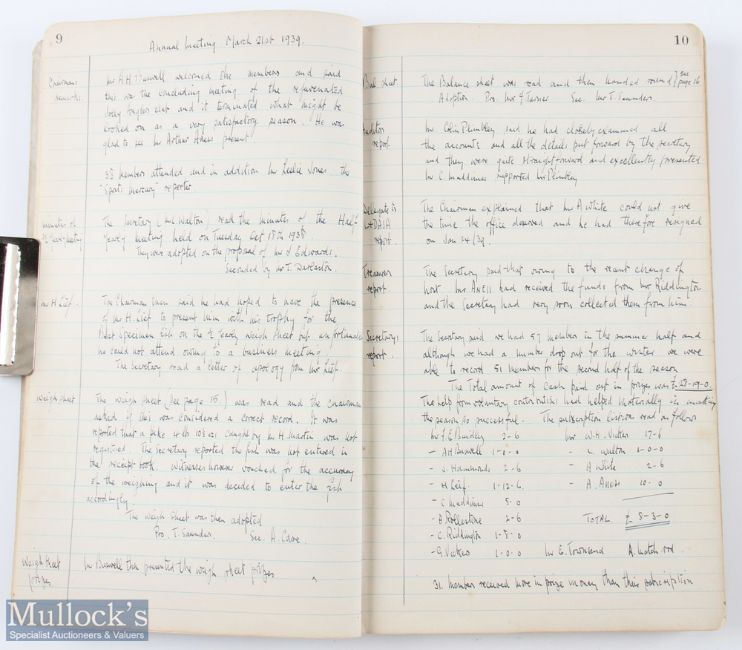 9
Annual Meeting March 21st 1939.
Chairmans
remarks.
Mr A H Burwell welcomed the members and said
this was the concluding meeting of the rejuvenated
club and it terminated what might be
looked on as a very satisfactory season. He was
glad to see Mr Arthur present
58 members attended and in addition Mr Leslie Jones the
"Sports Mercury" reporter
Minutes of
The Secretary (Mr Walton) read the minutes of the Half
Yearly meeting held on Tuesday Oct 18th 1938
They were adopted on the proposal of Mr J Edwards.
Seconded by Mr T.
Mr H Lief.
The Chairman then said he had hoped to have the presence
of Mr H Lief to present him with his trophy for the
Best Specimen fish on the ½ yearly weigh sheet but unfortunately
he could not attend owing to a business meeting.
The Secretary read a letter of apology from Mr Lief.
Weigh sheet
The weigh sheet (see page 15) was read and the Chairman
asked if this was considered a correct record. It was
reported that a pike 4 lb 10½ ozs caught by Mr H Martin was not
registered. The Secretary reported the fish was not entered in
the receipt book. Witnesses however vouched for the accuracy
of the weighing and it was decided to enter the fish
accordingly.
The Weigh Sheet was then adopted
Pro. T. Saunders. Sec. A. Cave.
Weigh Sheet
prizes
Mr Burwell then presented the weigh sheet prizes
10
Bal. sheet.
The Balance sheet was read and then handed round (see page 16
Adoption Pro. Mr Y Turner Sec. Mr T. Saunders
Auditors
report
Mr Colin Plumbley said he had closely examined all
the accounts and all the details put forward by the secretary
and they were quite straightforward and excellently presented
Mr C Maddimer supported Mr Plumbley
Delegate to
report.
The Chairman explained that Mr A White could not give
the time the office deserved and he had therefore resigned
on Jan 14/39.
Treasurers
report
The Secretary said that owing to the recent change of
host Mr Ancil had received the funds from Mr Riddington
and the Secretary had very soon collected them from him.
Secretarys
report.
The Secretary said we had 57 members in the summer half and
although we had a number drop out for the winter we were
able to record 51 members for the second half of the season
The Total amount of Cash paid out in prizes was £27-19-0.
The help from voluntary contributions had helped materially in making
the season so successful. The subscription list was read as follows
Mr J E Bindley 2-6 Mr W.H. Vickers 17-6
- AH Burwell 1-0-0 - L. Walton 2-0-0
- J. Hammonds 2-6 - A White 2-6
- H Lief 1-12-6 - A. Ancil 10-0
- C Maddimer 5-0
- B Rollestone 2-6 TOTAL £8-3-0
- C. Riddington 1-5-0
- G. Vickers 1-0-0 Mr E. Townsend A match rod
31 members received more in prize money than their subscription
Mullock's
Specialist Auctioneers & Valuers